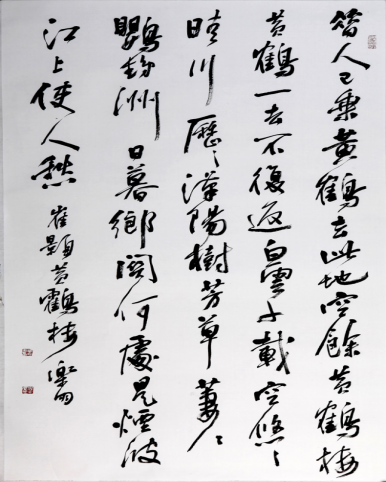 昔人已乘黄鶴去此地空餘黄鶴楼
黄鶴一去不復返白雲千載空悠々
晴川歷々漢陽樹芳草萋々
鸚鵡洲日暮鄉關何處是煙波
江上使人愁 崔顥黄鶴楼